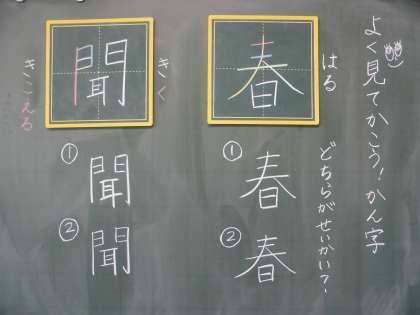 よく見てかこう！かん字
はる
春
どちらがせいかい？
① 春
② 春
きく
聞
きこえる
① 聞
② 聞